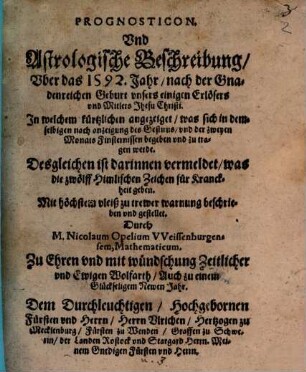 PROGNOSTICON.
Vnd
Astrologische Beschreibung/
Vber das 1592. Jahr/ nach der Gna-
denreichen Geburt vnsers einigen Erlösers
vnd Mitlers Jhesu Christi.
In welchem kürtzlichen angezeiget/ was sich in dem-
selbigen nach anzeigung des Gestirns/ vnd der zweyen
Monats Finsternissen begeben vnd zu tra-
gen werde.
Desgleichen ist darinnen vermeldet/ was
die zwölff Himlischen Zeichen für Kranck-
heit geben.
Mit höchstem vleiß zu trewer warnung beschrie-
ben vnd gestellet.
Durch
M. Nicolaum Opelium VVeissenburgen-
sem, Mathematicum.
Zu Ehren vnd mit wündschung Zeitlicher
vnd Ewigen Wolfarth/ Auch zu einem
Glückseligem Newen Jahr.
Dem Durchleuchtigen/ Hochgebornen
Fürsten vnd Herrn/ Herrn Vlrichen/ Hertzogen zu
Mecklenburg/ Fürsten zu Wenden/ Graffen zu Schwe-
rin/ der Landen Rostock vnd Stargard Herrn. Mei-
nem Gnedigen Fürsten vnd Herrn.